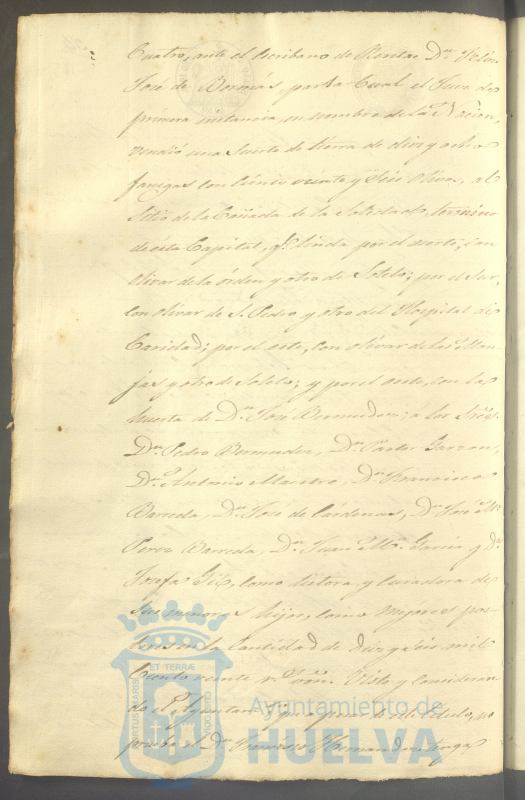 Cuatro, ante el Escribano de Rentas Dn.
José de Bormás, por la Cual el Juez de
primera instancia, en nombre de la Nacion,
vendió una Suerte de tierra de diez y ocho
fanegas con Ciento veinte y Seis Olivos, al
Sitio de la Cañada de la Soledad, termino
de esta Capital, qe. linda por el norte, con
Olivar de la órden y otro de Sotelo; por el Sur,
con olivar de S. Pedro y otro del Hospital de
Caridad; por el este, con olivar de las Mon-
jas y otro de Sotelo; y por el oeste, con la
huerta de Dn. José Bermudez; á los Sres.
Dn. Pedro Bermudez, Dn. Garzon,
Dn. Antonio Maestro, Dn. Francisco
Barreda, Dn. José de Cárdenas, Dn. José Ma.
Perez Barreda, Dn. Juan Ma. Garcia y Da.
Josefa como tutora y curadora de
sus menores hijos, como mejores pos-
tores en la Cantidad de diez y seis mil
Ciento veinte rs. von. Visto y Consideran-
do el Ayuntamto. que apesar de este titulo, no
prueba Dn. Francisco Hernandez tenga
PORTUS MARIS
ET TERRÆ
CUSTODIA
Ayuntamiento de
HUELVA